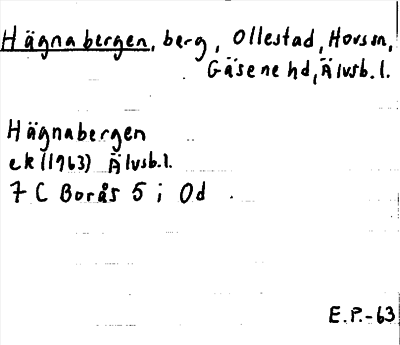 Hägnabergen, berg, Ollestad, Hovs sn,
Gäsene hd, Älvsb. l.
Hägnabergen
ek (1963) Älvsb. l.
7 C Borås 5 i Od
E.P.-63